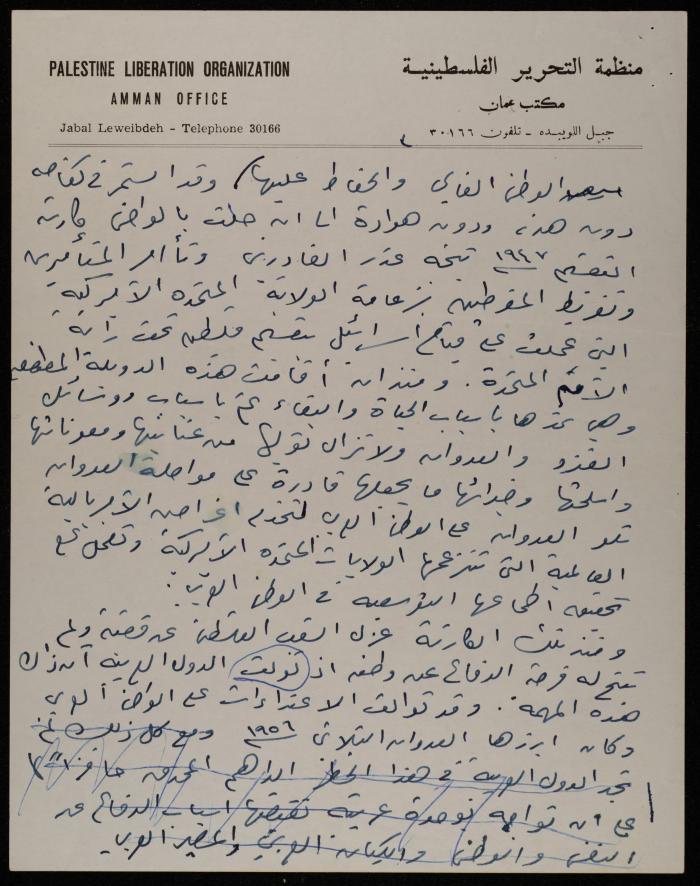 PALESTINE LIBERATION ORGANIZATION
AMMAN OFFICE
Jabal Leweibdeh - Telephone 30166
منظمة التحرير الفلسطينية
مكتب عمان
جبل اللويبده - تلفون ٣٠١٦٦
الوطن الغالي والحفاظ عليها / وقد استمر في كفاحه
دون هدنه ودون هوادة الى ان حلت بالوطن كارثة
التقسيم ١٩٤٧ نتيجة غدر الغادرين وتآمر المتآمرين
وتفريط المفرطين بزعامة الولايات المتحده الأمريكية
التي عملت على قيام اسرائيل بتقسيم فلسطين تحت راية
الأمم المتحدة . ومنذ ان أقامت هذه الدويلة المصطنعة
وهي تمدها باسباب الحياة والبقاء ثم باسباب ووسائل
الغزو والعدوان ولا تزال تواليها من عنايتها ومعوناتها
واسلحتها وخبرائها ما يجعلها قادرة على مواصلة العدوان
تلو العدوان على الوطن العربي لتخدم اغراض الأمبريالية
العالمية التي تتزعمها الولايات المتحده الأمريكية وتعمل على
تحقيق أطماعها التوسعية في الوطن العربي .
ومنذ تلك الكارثة عزل الشعب الفلسطيني عن قضيته ولم
تتح له فرصة الدفاع عن وطنه اذ تولت الدول العربية آنذاك
هذه المهمة . وقد توالت الاعتداءات على الوطن العربي
وكان ابرزها العدوان الثلاثي ١٩٥٦ ومع كل ذلك لم
تجد الدول العربية في هذا الخطر الداهم المحدق حافزا لها
على ان تواجه بوحدة عربية تقتضيها اسباب الدفاع عن
النفس والوطن والكيان العربي والمصير العربي